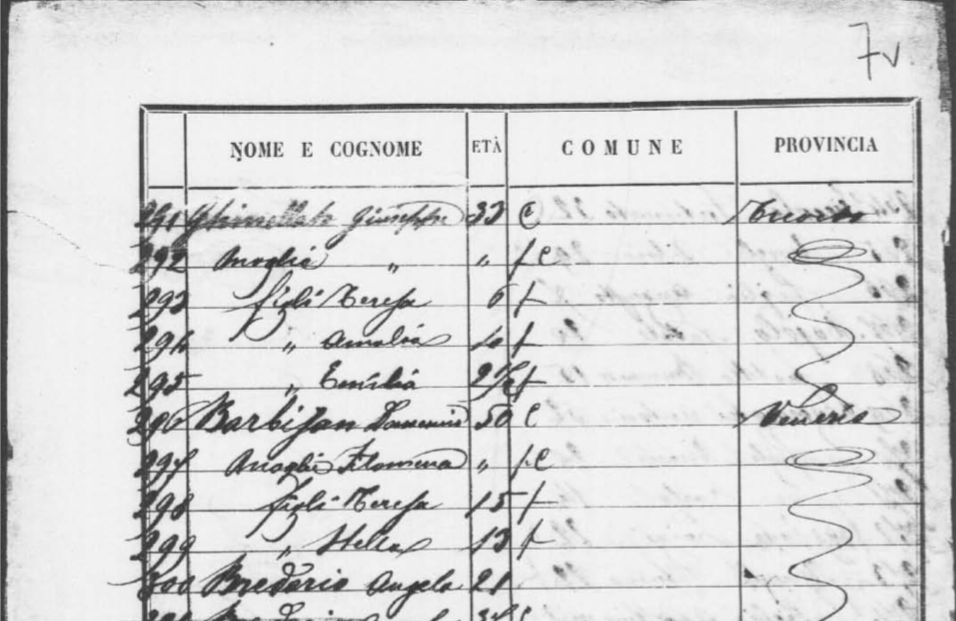 7v
NOME E COGNOME ETÀ COMUNE PROVINCIA
291 Giuseppe 33 C Treviso
292 Moglie " " f C
293 figli Teresa 6 f
294 " Amalia 4 f
295 " Emilia 2 1/2 f
296 Barbisan Domenico 50 C Venezia
297 Moglie Filomena " f C
298 figli Teresa 15 f
299 " Stella 13 f
300 Brederio Angelo 21